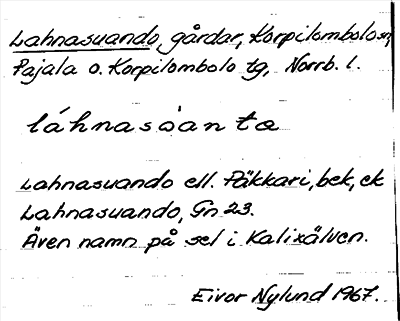 Lahnasuando, gårdar, Korpilombolo sn,
Pajala o. Korpilombolo tg, Norrb. l.
láhnasòanta
Lahnasuando ell. Päkkari, bek, ek
Lahnasuando, Gn 23.
Även namn på sel i Kalixälven.
Eivor Nylund 1967.